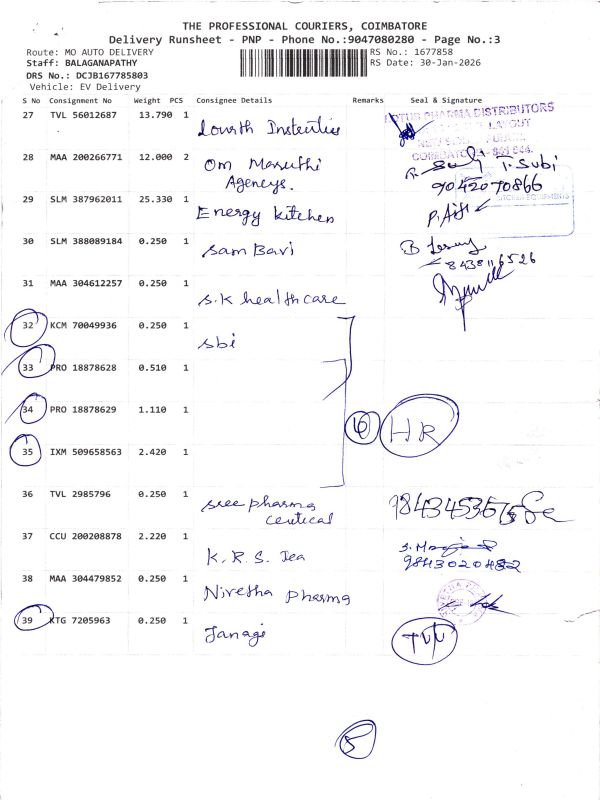 THE PROFESSIONAL COURIERS, COIMBATORE
Delivery Runsheet - PNP - Phone No.:9047080280 - Page No.:3
Route: MO AUTO DELIVERY
RS No.: 1677858
Staff: BALAGANAPATHY
RS Date: 30-Jan-2026
DRS No.: DCJB167785803
Vehicle: EV Delivery
S No Consignment No Weight PCS Consignee Details Remarks Seal & Signature
27 TVL 56012687 13.790 1
PHARMA DISTRIBUTORS
LAYOUT
COIMBATORE
28 MAA 200266771 12.000 2 Om Maruthi
Agencys.
T. Subi
9042070866
29 SLM 387962011 25.330 1 Energy kitchen
KITCHEN EQUIPMENTS
30 SLM 388089184 0.250 1 Sam Bavi
8438116526
31 MAA 304612257 0.250 1 S.K healthcare
32 KCM 70049936 0.250 1 sbi
33 PRO 18878628 0.510 1
34 PRO 18878629 1.110 1
HR
35 IXM 509658563 2.420 1
36 TVL 2985796 0.250 1 sree pharma
ceutical
37 CCU 200208878 2.220 1 K.R.S. Tea
9843020482
38 MAA 304479852 0.250 1 Nivetha pharma
39 KTG 7205963 0.250 1 Janagi
5